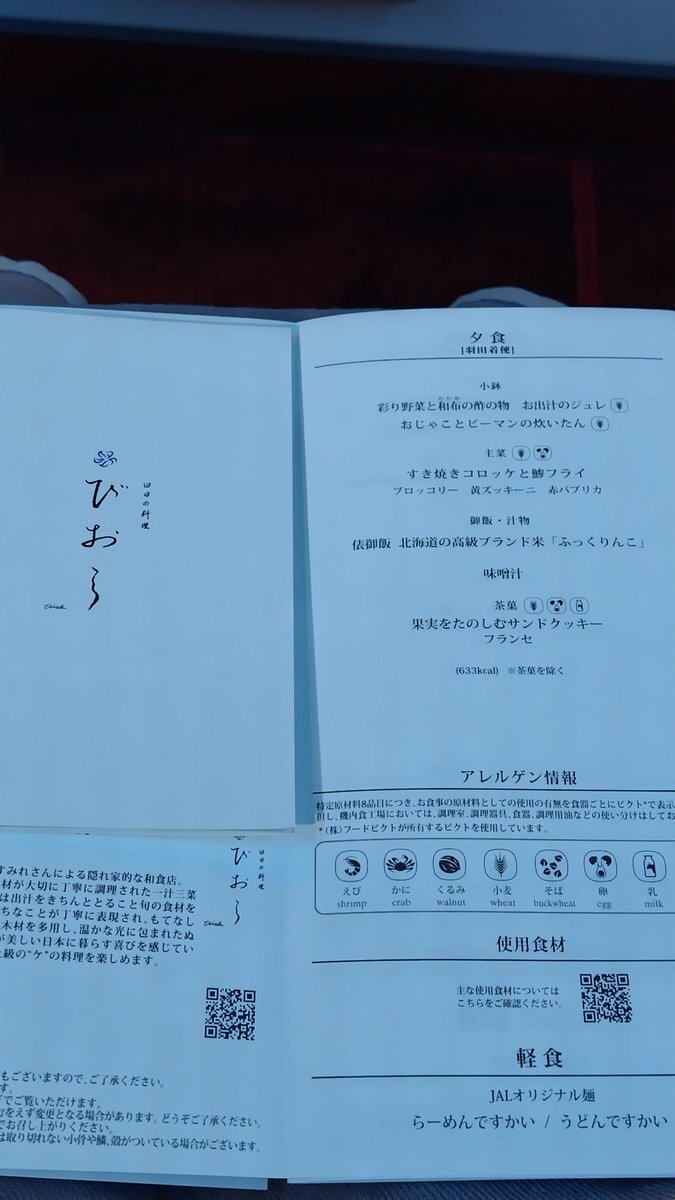 四日の料理
びおら
すみれさんによる隠れ家的な和食店。
材が大切に丁寧に調理された一汁三菜
は出汁をきちんととること旬の食材を
ちなことが丁寧に表現され、もてなし
木材を多用し、温かな光に包まれたぬ
が美しい日本に暮らす喜びを感じてい
級の“ケ”の料理を楽しめます。
四日の料理
びおら
もございますので、ご了承ください。
す。
でご覧いただけます。
むをえず変更となる場合があります。どうぞご了承ください。
でお召し上がりください。
は取り切れない小骨や鱗、殻がついている場合がございます。
夕食
[羽田着便]
小鉢
彩り野菜と和布の酢の物 お出汁のジュレ
わかめ
おじゃことピーマンの炊いたん
主菜
すき焼きコロッケと鯵フライ
ブロッコリー 黄ズッキーニ 赤パプリカ
御飯・汁物
俵御飯 北海道の高級ブランド米「ふっくりんこ」
味噌汁
茶菓
果実をたのしむサンドクッキー
フランセ
(633kcal) ※茶菓を除く
アレルゲン情報
特定原材料8品目につき、お食事の原材料としての使用の有無を食器ごとにピクト*で表示
但し、機内食工場においては、調理室、調理器具、食器、調理用油などの使い分けはしてお
*(株)フードピクトが所有するピクトを使用しています。
えび かに くるみ 小麦 そば 卵 乳
shrimp crab walnut wheat buckwheat egg milk
使用食材
主な使用食材については
こちらをご確認ください。
軽食
JALオリジナル麺
らーめんですかい / うどんですかい